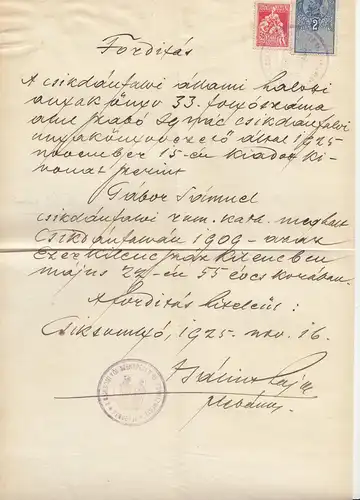 Fordítás
A csíkdánfalvi állami halotti
anyakönyv 33. folyószáma
alatt Szabó Ignác csíkdánfalvi
anyakönyvvezető által 1925
november 15-én kiadott ki-
vonat szerint
Gábor Sámuel
csíkdánfalvi rom. kath. meghalt
Csíkdánfalván 1909 – azaz
Ezerkilencszázkilencben
május 24-én 55 éves korában.
A fordítás hiteléül:
Csíksomlyó, 1925. nov. 16.
2